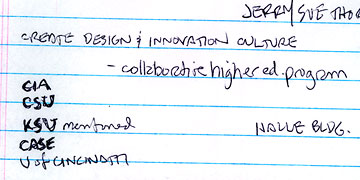 JERRY SUE THOR
CREATE DESIGN & INNOVATION CULTURE
- collaborative higher ed. program
CIA
CSU
KSU mentioned HALLE BLDG.
CASE
U of CINCINNATI